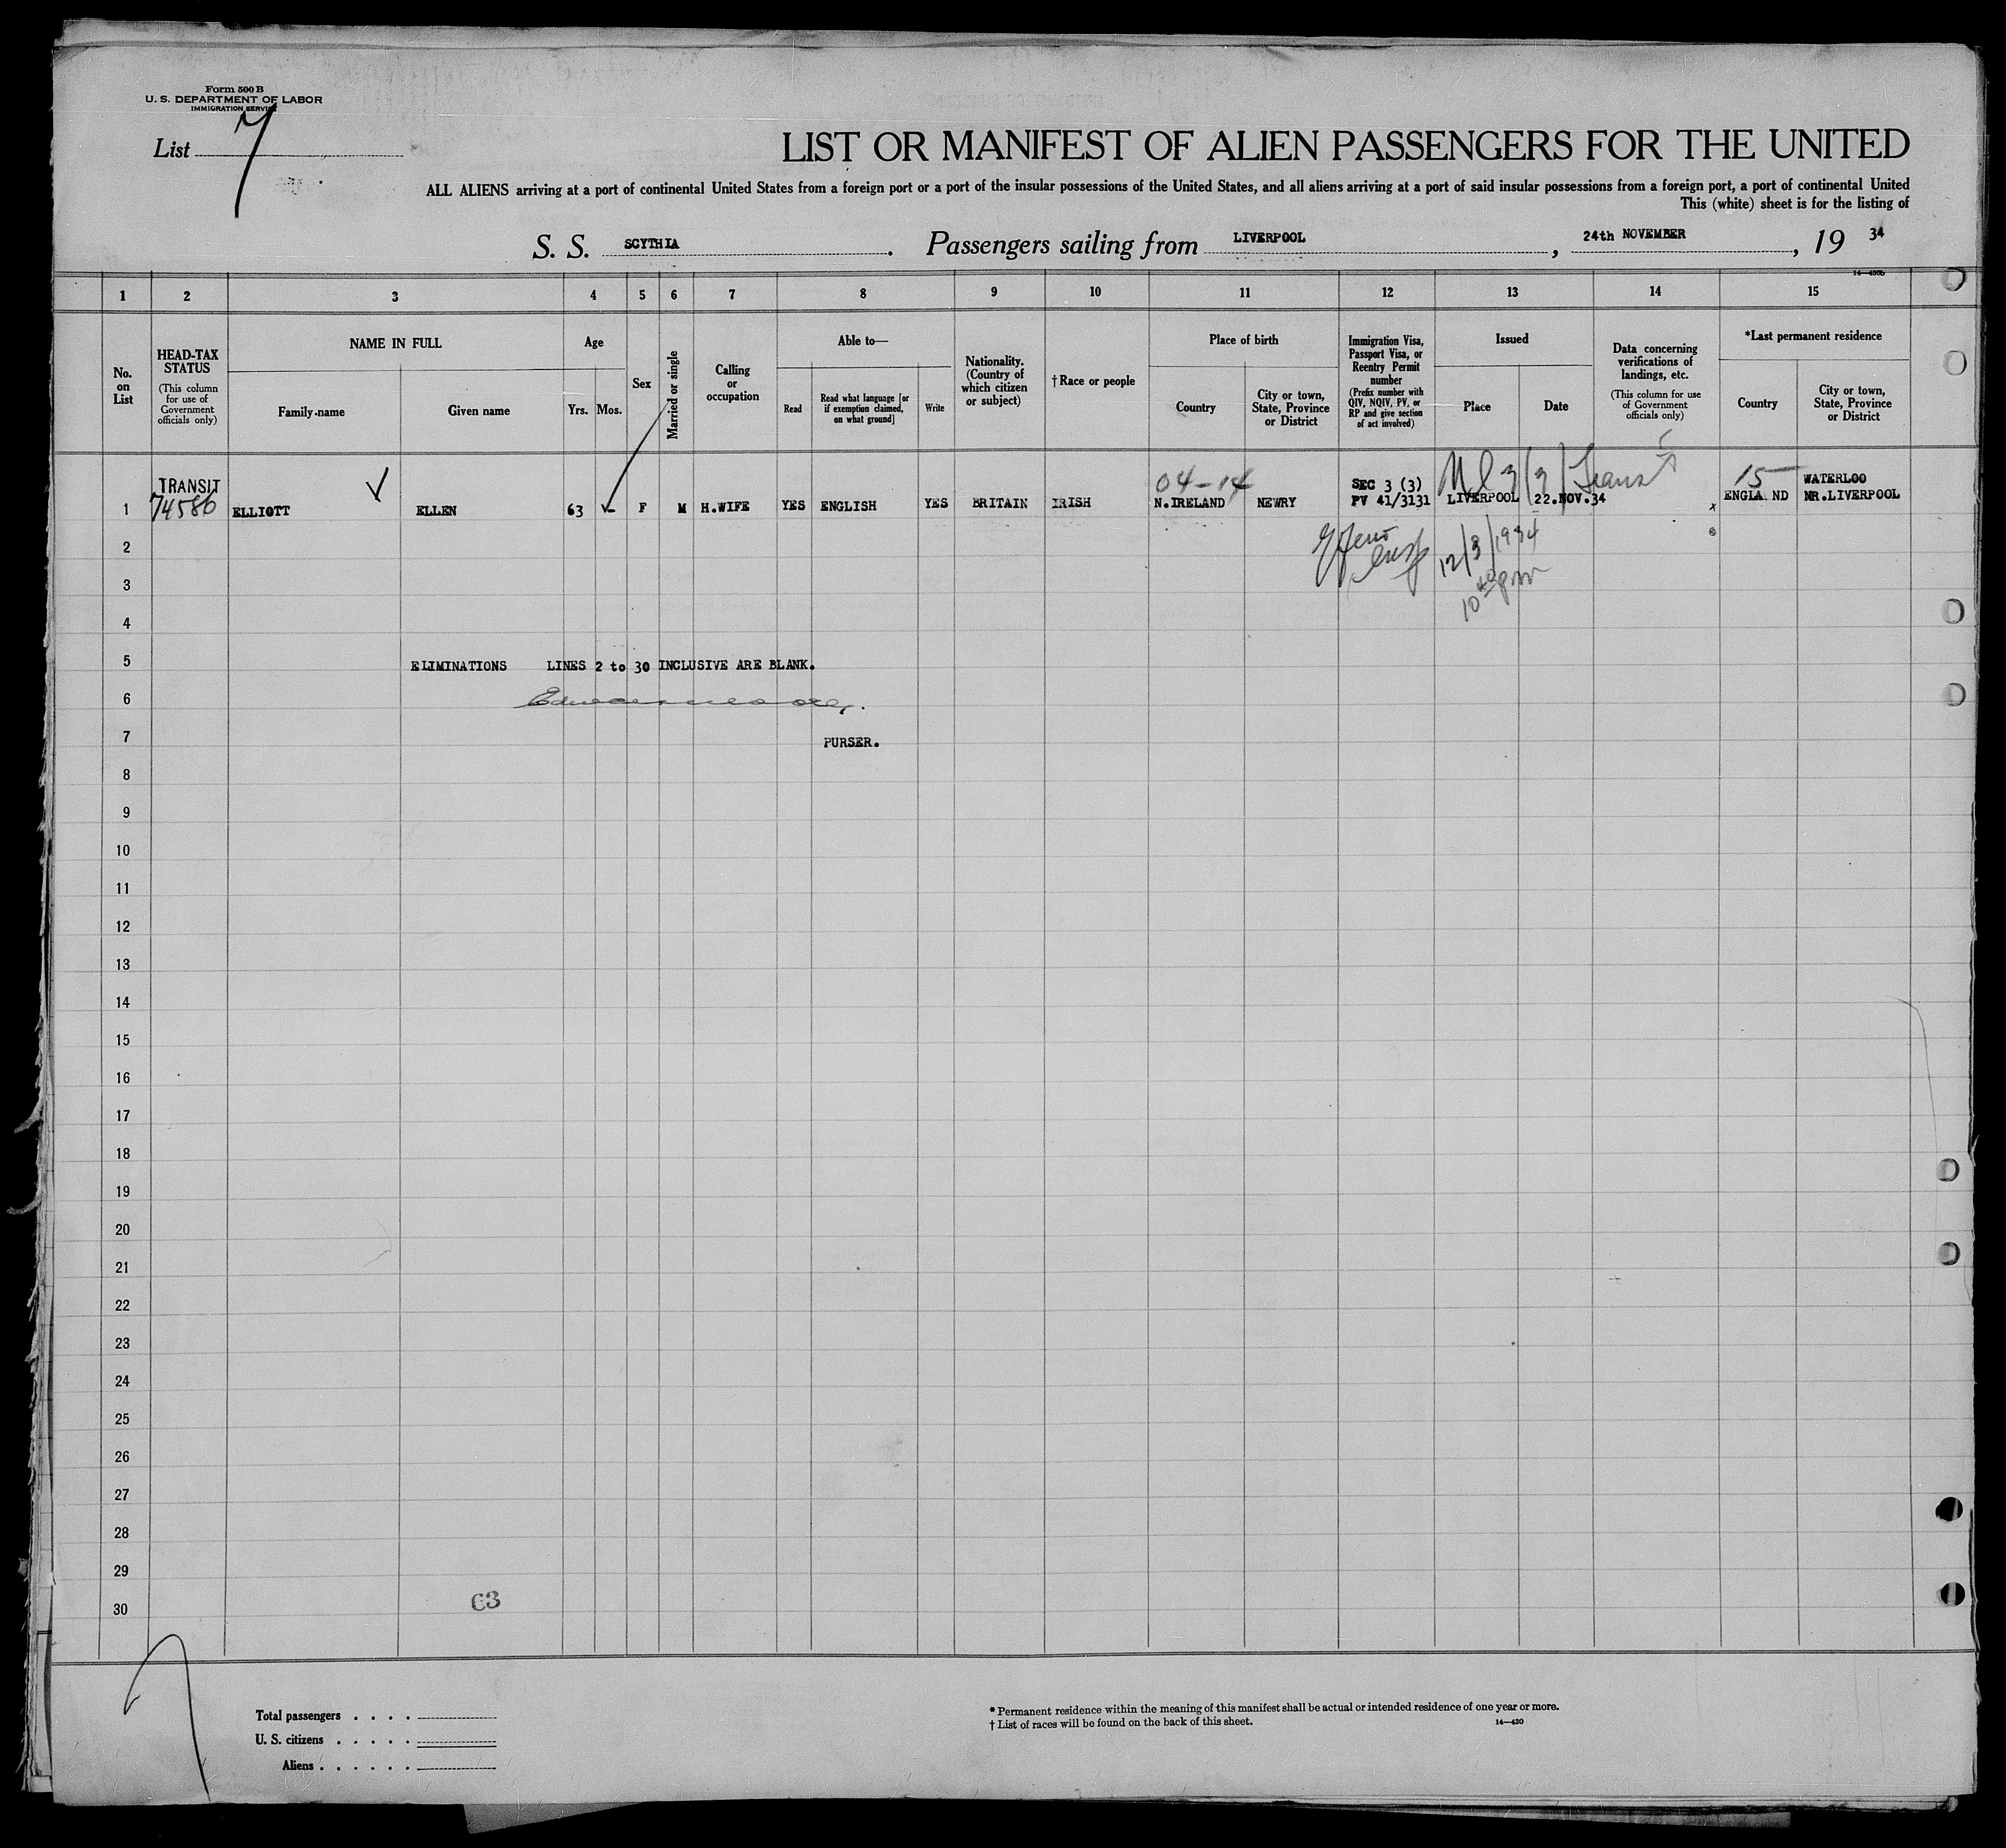 Form 500 B
U. S. DEPARTMENT OF LABOR
IMMIGRATION SERVICE
List 7
LIST OR MANIFEST OF ALIEN PASSENGERS FOR THE UNITED
ALL ALIENS arriving at a port of continental United States from a foreign port or a port of the insular possessions of the United States, and all aliens arriving at a port of said insular possessions from a foreign port, a port of continental United
This (white) sheet is for the listing of
S. S. SCYTHIA. Passengers sailing from LIVERPOOL, 24th NOVEMBER, 19 34
14—430b
1 2 3 4 5 6 7 8 9 10 11 12 13 14 15
No. on List
HEAD-TAX STATUS (This column for use of Government officials only)
NAME IN FULL
Family name Given name
Age
Yrs. Mos.
Sex
Married or single
Calling or occupation
Able to—
Read
Read what language [or if exemption claimed, on what ground]
Write
Nationality. (Country of which citizen or subject)
†Race or people
Place of birth
Country
City or town, State, Province or District
Immigration Visa, Passport Visa, or Reentry Permit number (Prefix number with QIV, NQIV, PV, or RP and give section of act involved)
Issued
Place Date
Data concerning verifications of landings, etc. (This column for use of Government officials only)
*Last permanent residence
Country
City or town, State, Province or District
TRANSIT 04-14 SEC 3 (3) 3(3) Trans 15 WATERLOO
1 74580 ELLIOTT ELLEN 63 F M H.WIFE YES ENGLISH YES BRITAIN IRISH N.IRELAND NEWRY PV 41/3131 LIVERPOOL 22.NOV.34 x ENGLAND NR.LIVERPOOL
2 12/3/1934
3 10 40 pm
4
5 ELIMINATIONS LINES 2 to 30 INCLUSIVE ARE BLANK.
6
7 PURSER.
8
9
10
11
12
13
14
15
16
17
18
19
20
21
22
23
24
25
26
27
28
29
63
30
Total passengers . . . .
U. S. citizens . . . . .
Aliens . . . . . .
* Permanent residence within the meaning of this manifest shall be actual or intended residence of one year or more.
† List of races will be found on the back of this sheet. 14—430